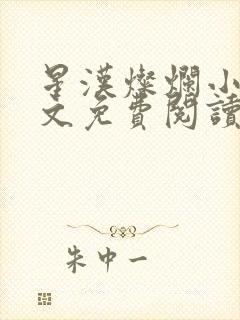 星漢燦爛小
文免費閱讀
朱中一